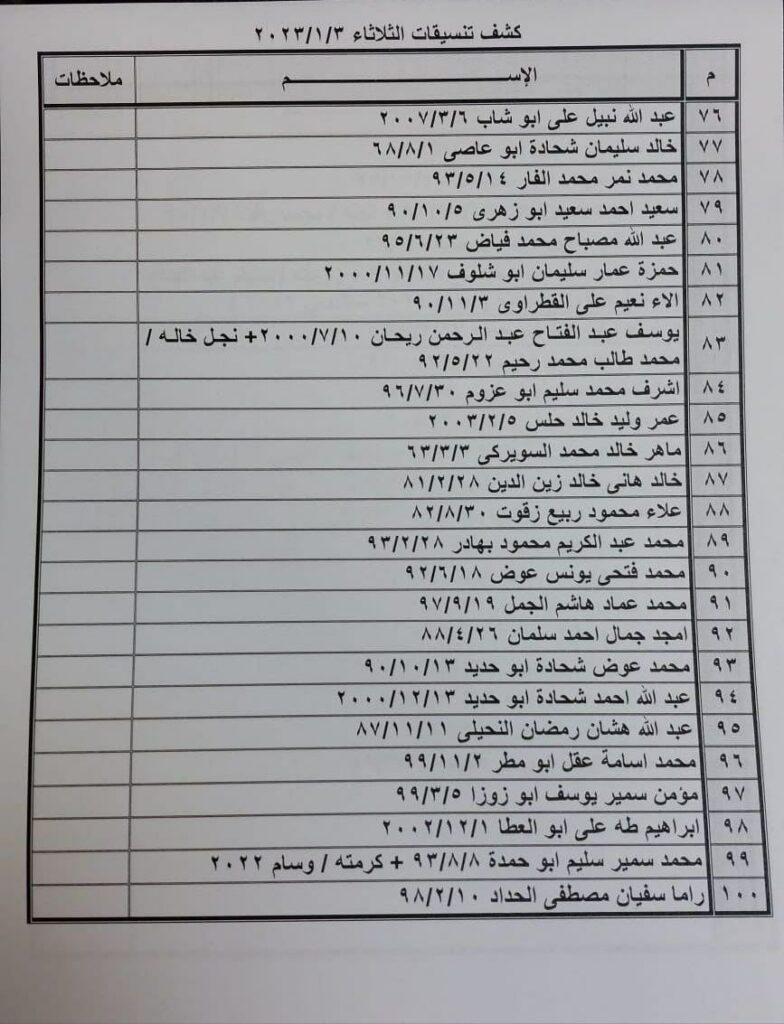 كشف تنسيقات الثلاثاء ٢٠٢٣/١/٣
م الإســـــم ملاحظات
٧٦ عبد الله نبيل على ابو شاب ٢٠٠٧/٣/٦
٧٧ خالد سليمان شحادة ابو عاصى ٦٨/٨/١
٧٨ محمد نمر محمد الفار ٩٣/٥/١٤
٧٩ سعيد احمد سعيد ابو زهرى ٩٠/١٠/٥
٨٠ عبد الله مصباح محمد فياض ٩٥/٦/٢٣
٨١ حمزة عمار سليمان ابو شلوف ٢٠٠٠/١١/١٧
٨٢ الاء نعيم على القطراوى ٩٠/١١/٣
٨٣ يوسف عبد الفتاح عبد الرحمن ريحان ٢٠٠٠/٧/١٠+ نجل خاله /
محمد طالب محمد رحيم ٩٢/٥/٢٢
٨٤ اشرف محمد سليم ابو عزوم ٩٦/٧/٣٠
٨٥ عمر وليد خالد حلس ٢٠٠٣/٢/٥
٨٦ ماهر خالد محمد السويركى ٦٣/٣/٣
٨٧ خالد هانى خالد زين الدين ٨١/٢/٢٨
٨٨ علاء محمود ربيع زقوت ٨٢/٨/٣٠
٨٩ محمد عبد الكريم محمود بهادر ٩٣/٢/٢٨
٩٠ محمد فتحى يونس عوض ٩٢/٦/١٨
٩١ محمد عماد هاشم الجمل ٩٧/٩/١٩
٩٢ امجد جمال احمد سلمان ٨٨/٤/٢٦
٩٣ محمد عوض شحادة ابو حديد ٩٠/١٠/١٣
٩٤ عبد الله احمد شحادة ابو حديد ٢٠٠٠/١٢/١٣
٩٥ عبد الله هشان رمضان النحيلى ٨٧/١١/١١
٩٦ محمد اسامة عقل ابو مطر ٩٩/١١/٢
٩٧ مؤمن سمير يوسف ابو زوزا ٩٩/٣/٥
٩٨ ابراهيم طه على ابو العطا ٢٠٠٢/١٢/١
٩٩ محمد سمير سليم ابو حمدة ٩٣/٨/٨ + كرمته / وسام ٢٠٢٢
١٠٠ راما سفيان مصطفى الحداد ٩٨/٢/١٠